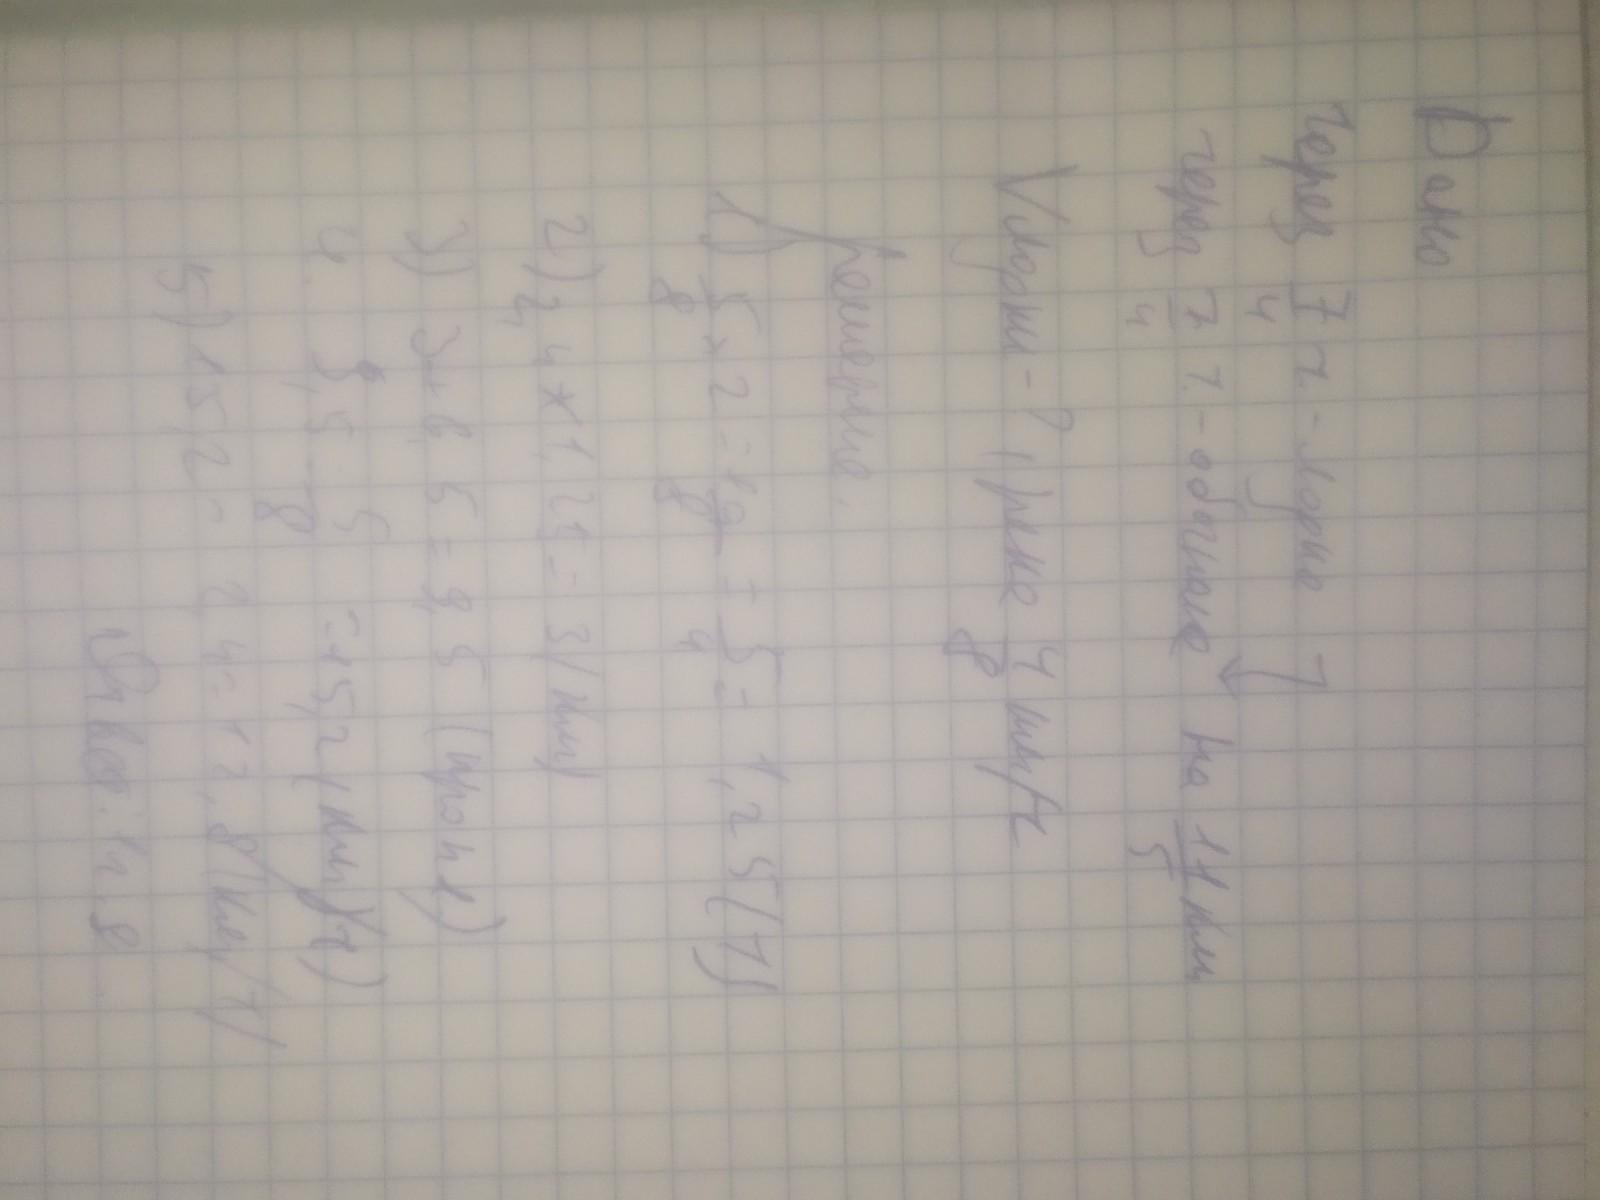 Дано
Через 7/4 ч. - лодка
через 7/4 ч. - обогнала на 11/5 км
V лодки - ? реке 4/8 км/ч
Решение.
1) 5/8 * 2 = 10/8 = 5/4 = 1,25 (ч)
2) 2,4 * 1,25 = 3 (км)
3) 3 + 6,5 = 9,5
4. 9,5 5/8 = 15,2 (км/ч)
5) 15,2 - 2,4 = 12,8 (км/ч)
Ответ: 12,8